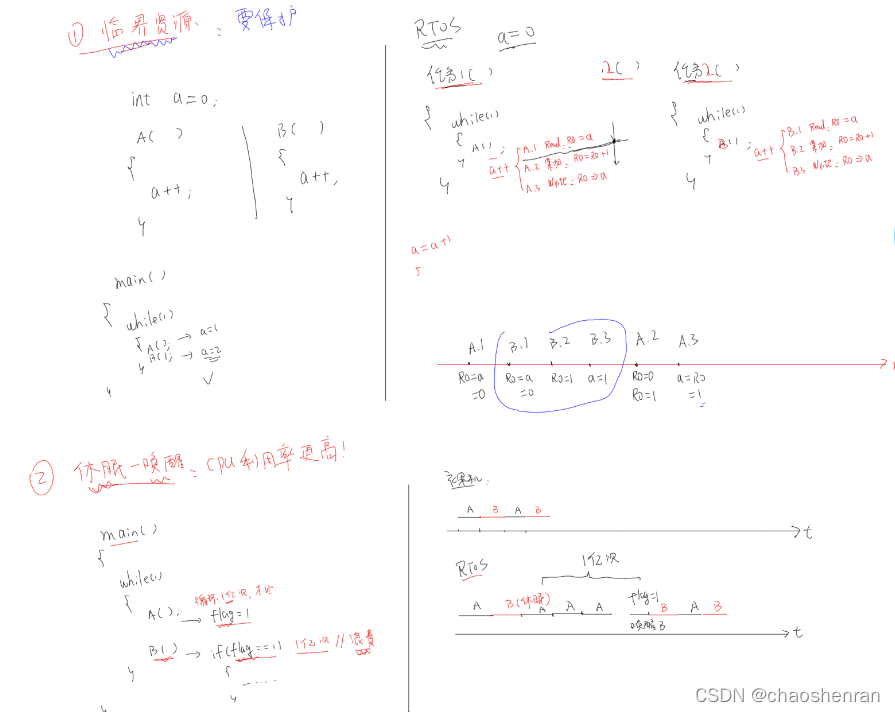 ① 临界资源：要保护
int a=0;
A( )
{
a++;
}
B( )
{
a++;
}
main()
{
while(1)
{ A(); → a=1
B(); → a=2
}
}
RTOS a=0
任务1( )
{
while(1)
{
A();
}
}
a++
A.1 Read: R0=a
A.2 累加: R0=R0+1
A.3 Write: R0⇒a
2( )
任务2( )
{
while(1)
{
B();
}
}
a++
B.1 Read, R0=a
B.2 累加: R0=R0+1
B.3 Write: R0⇒a
a=a+1
A.1 B.1 B.2 B.3 A.2 A.3
R0=a R0=a R0=1 a=1 R0=0 a=R0
=0 =0 R0=1 =1
② 休眠-唤醒：CPU利用率更高!
main()
{
while(1)
{
循环1亿次,才比
A(); → flag=1
B() → if(flag==1) 1亿次 // 浪费
{
......
}
}
}
裸机:
A B A B
t
RTOS
1亿次
flag=1
A B(休眠) A A A B A B
唤醒B
t
CSDN @chaoshenran